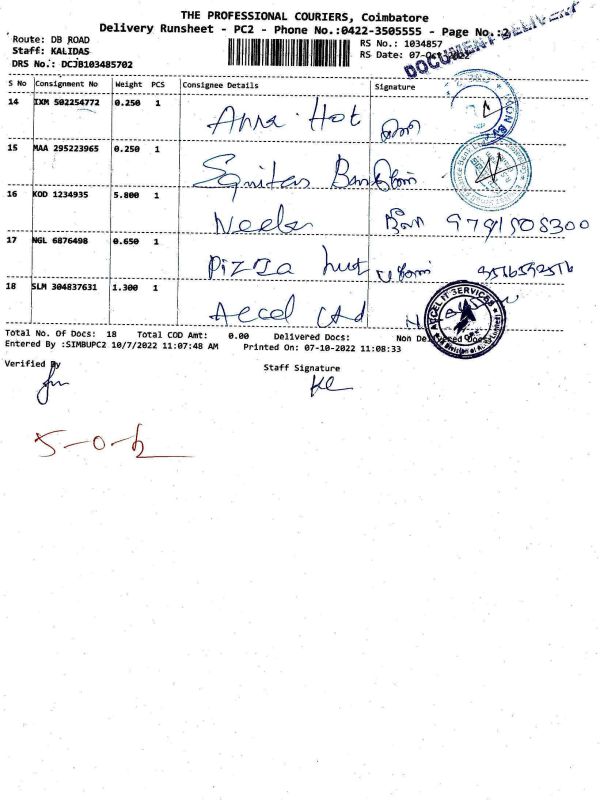 THE PROFESSIONAL COURIERS, Coimbatore
Delivery Runsheet - PC2 - Phone No.:0422-3505555 - Page No.:2
DOCUMENT DELIVERY
Route: DB ROAD
RS No.: 1034857
Staff: KALIDAS
RS Date: 07-Oct
DRS No.: DCJB103485702
S No Consignment No Weight PCS Consignee Details Signature
14 IXM 502254772 0.250 1 Hot
15 MAA 295223965 0.250 1 Equitas Bank
16 KOD 1234935 5.800 1 Neels 9791508300
17 NGL 6876498 0.650 1 Pizza hut 9516592516
18 SLM 304837631 1.300 1 Accel Ltd
ACCEL IT SERVICES
Total No. Of Docs: 18 Total COD Amt: 0.00 Delivered Docs: Non Delivered Docs
Entered By :SIMBUPC2 10/7/2022 11:07:48 AM Printed On: 07-10-2022 11:08:33
Verified By Staff Signature